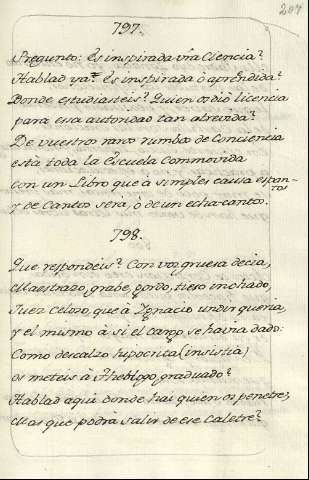 207
797.
Pregunto: Es inspirada vr̃a Ciencia?
Hablad ya: Es inspirada ò aprendida?
Donde estudiasteis? Quien os diò licencia
para esa autoridad tan atrevida?
De vuestro raro rumbo de Conciencia
està toda la Escuela Commovida
con un Libro que à simples causa espan-
tos
y de Cantos serà, ò de un echa-cantos.
798.
Que respondeis? Con voz gruesa decia,
Maestrazo, grabe, gordo, tieso inchado,
Juez Celoso, que à Ygnacio undir queria,
y el mismo à si el cargo se havia dado:
Como descalzo hipocrita (insistia)
os meteis à Theologo graduado?
Hablad aqui donde hai quien os penetre,
Mas que podrà salir de ese Caletre?